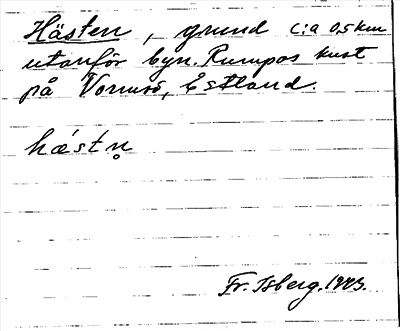 Hästen, grund c:a 0,5 km
utanför byn. Rumpos kust
på Vormsö, Estland.
hæstn̥
Fr. Isberg. 1943.